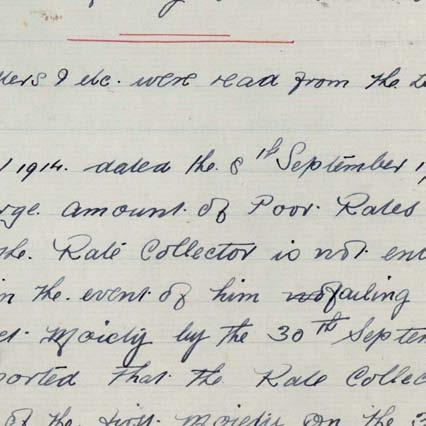 ters & etc. were read from the
1914. dated the 8th September 19
rge. amount. of Poor. Rates
the. Rate Collector is not. en
in the. event of him failing
Moiety by the 30th Septem
ported that the Rate Collec
of the first Moiety on the 3